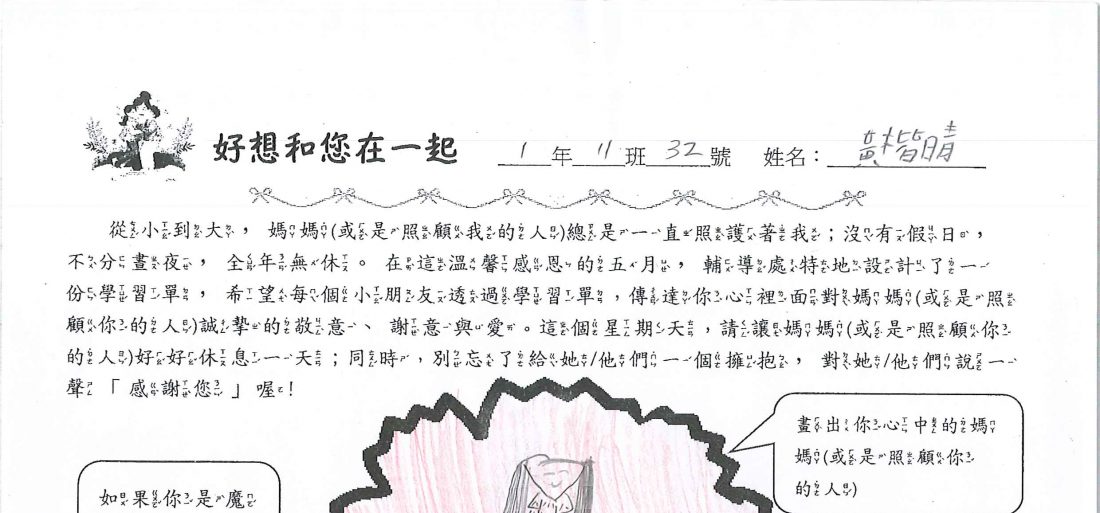 好想和您在一起 1年11班32號 姓名：黃楷晴
從小到大，媽媽(或是照顧我的人)總是一直照護著我；沒有假日，
不分晝夜，全年無休。在這溫馨感恩的五月，輔導處特地設計了一
份學習單，希望每個小朋友透過學習單，傳達你心裡面對媽媽(或是照
顧你的人)誠摯的敬意、謝意與愛。這個星期天，請讓媽媽(或是照顧你
的人)好好休息一天；同時，別忘了給她/他們一個擁抱，對她/他們說一
聲「感謝您」喔！
畫出你心中的媽
媽(或是照顧你
的人)
如果你是魔